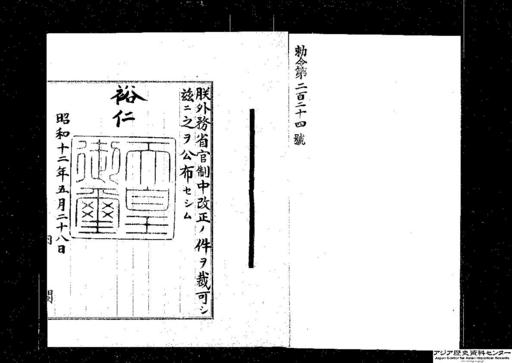 勅令第二百二十四號
朕外務省官制中改正ノ件ヲ裁可シ
玆ニ之ヲ公布セシム
裕仁
天皇御璽
昭和十二年五月二十八日
内閣
アジア歴史資料センター
Japan Center for Asian Historical Records